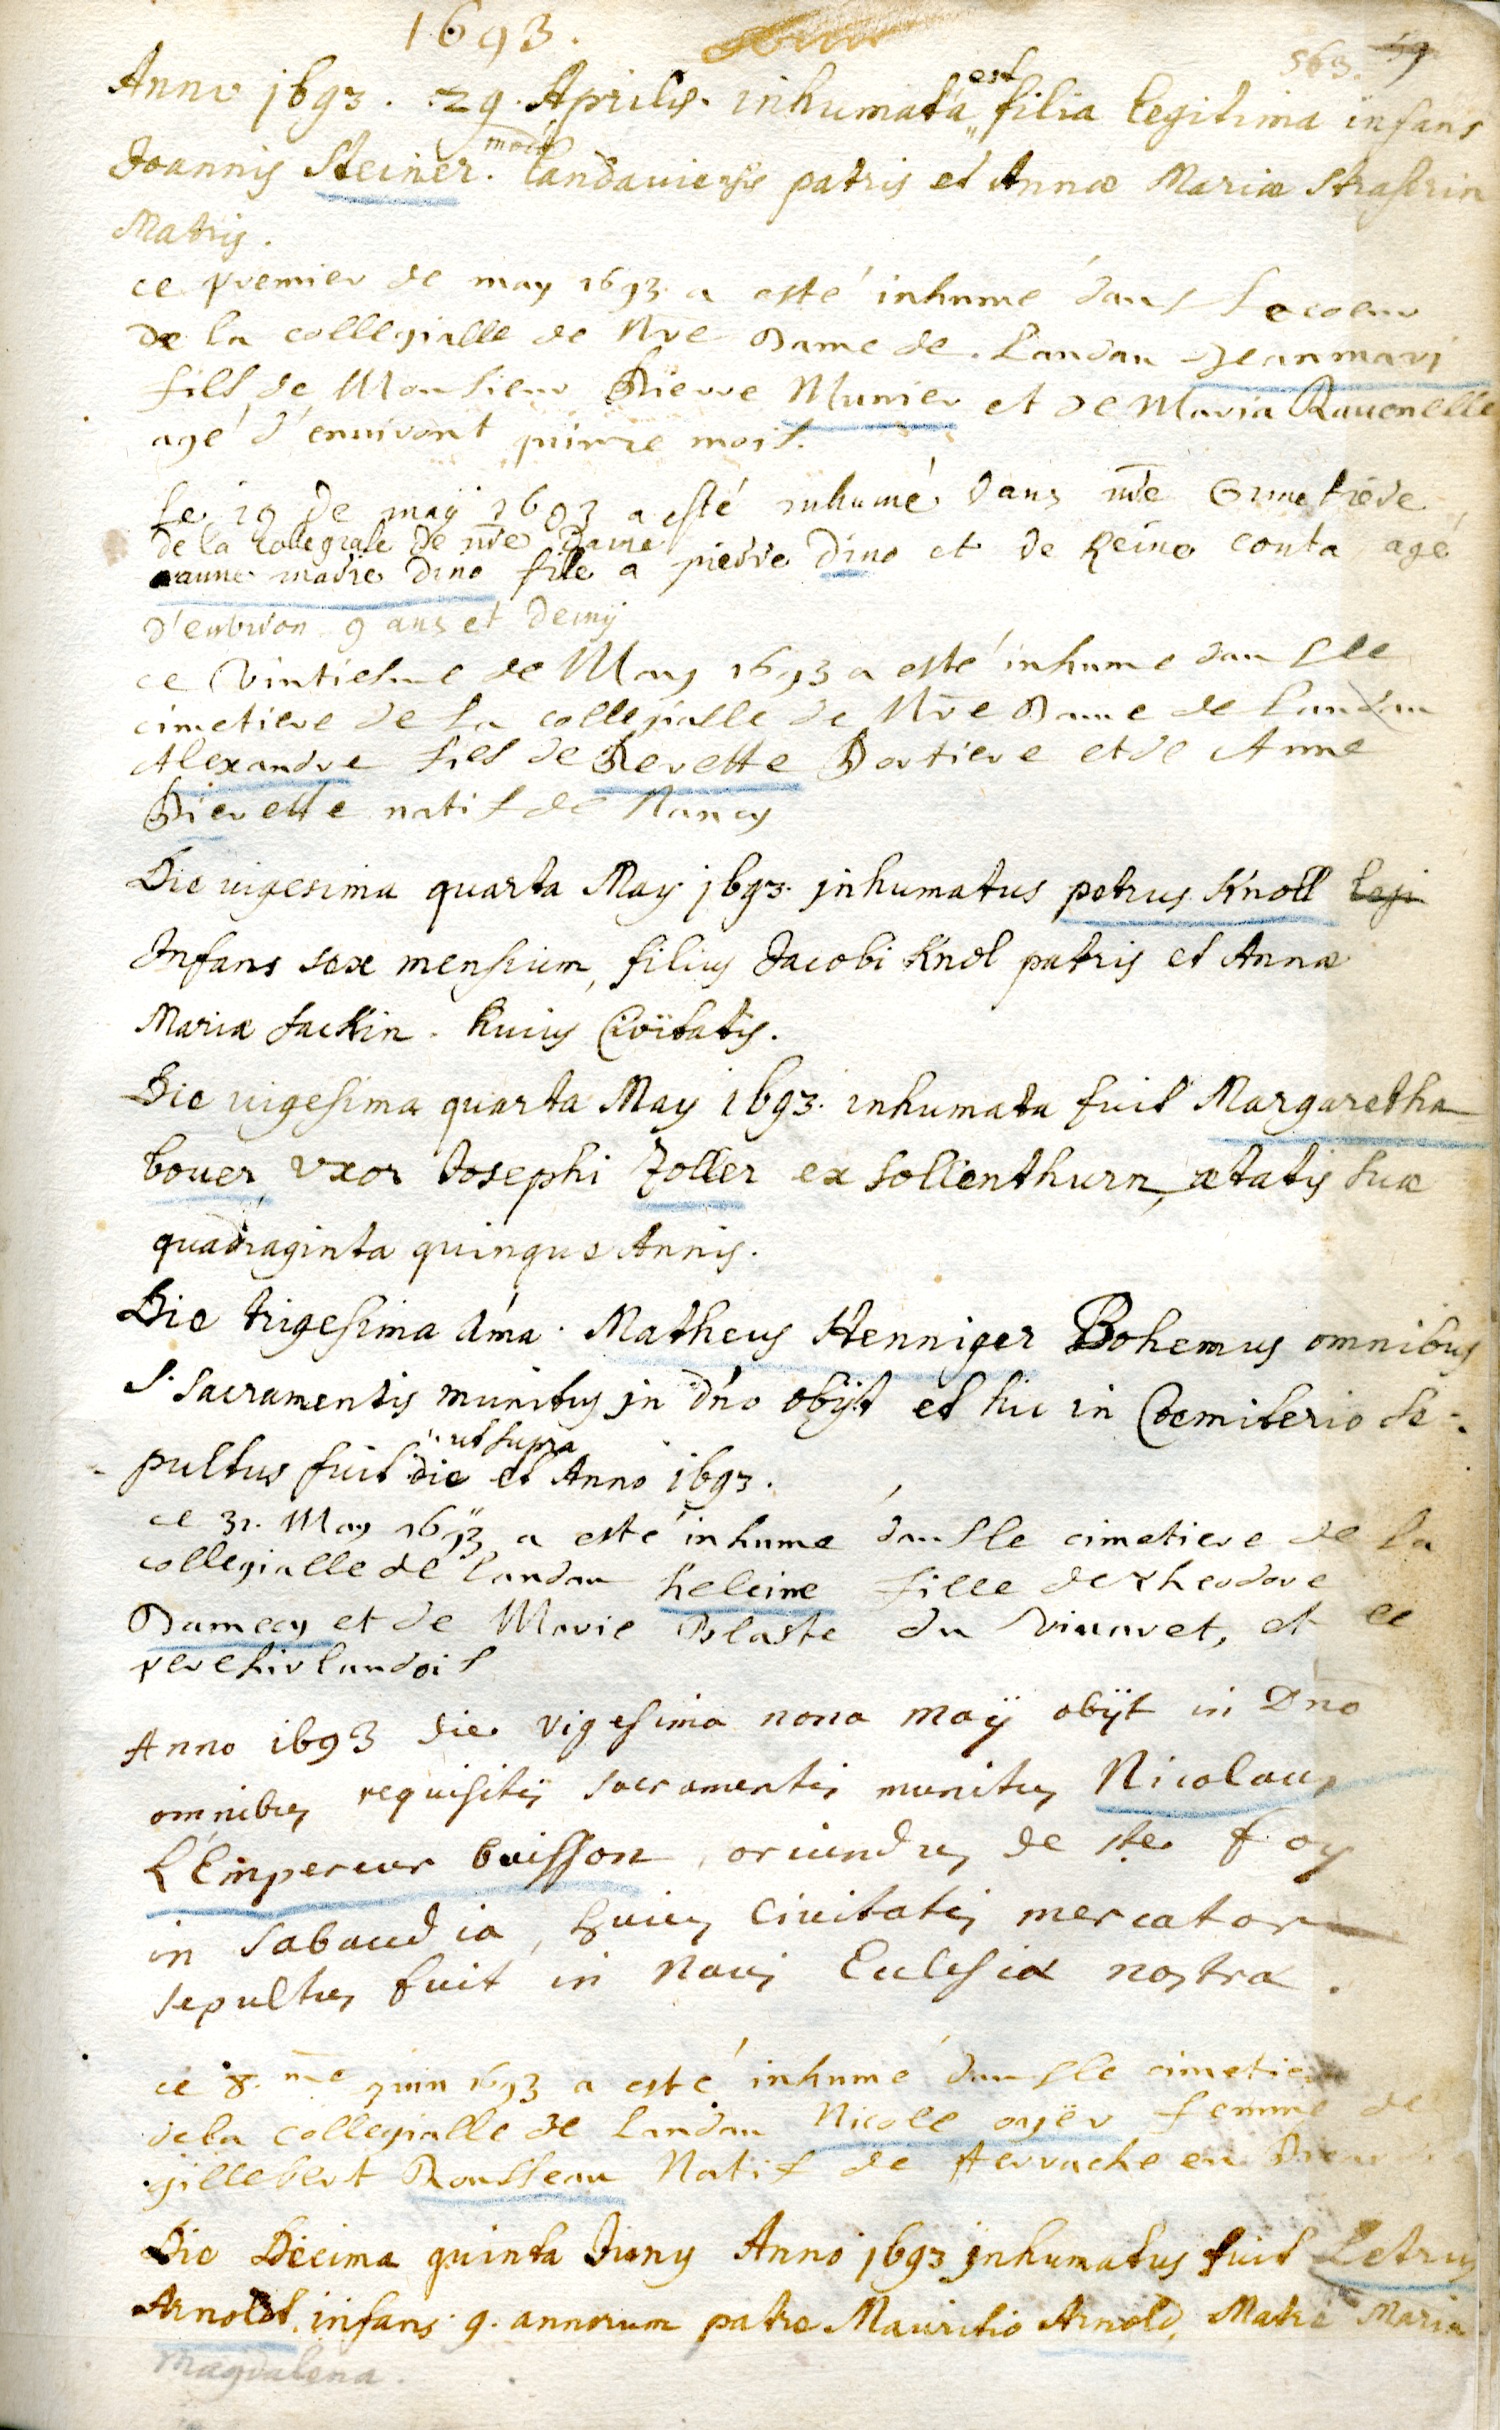 1693.
563. 59
Anno 1693. 29. Aprilis. inhumata est filia legitima infans
Joannis Steiner. modo Landauiensis patris et Annæ Mariæ Strasrin
Matris.
ce premier de may 1693 a esté inhumé dans le coeur
de la collegialle de Nre Dame de Landau Jean mari
fils de Monsieur Pierre Munier et de Maria Rauenelle
agé d'enuiront quinze mois.
Le 19 de maÿ 1693 a esté inhumé dans nre Cimetiere
de la collegiale de nre Dame
jaune marie dino fille a pierre dino et de Reine conta agé
d'environ 9 ans et demÿ
ce vintiesme de May 1693 a esté inhume dans le
cimetiere de la collegialle de Nre Dame de Landau
Alexandre fils de Perette Portiere et de Anne
Pierette natif de Nancy
Die uigesima quarta May 1693. inhumatus petrus Knoll legi
Infans sex mensium, filius Jacobi Knol patris et Annæ
Mariæ Jackin. huius Civitatis.
Die uigesima quarta May 1693. inhumata fuit Margaretha
bouer vxor Josephi Zoller ex Sollenthurn, ætatis suæ
quadraginta quinque Annis.
Die trigesima áma. Matheus Henniger Bohemus omnibus
S. Sacramentis munitus in dno obijt et hic in Coemiterio se-
pultus fuit die ut supra et Anno 1693.
ce 31. May 1693 a esté inhume dans le cimetiere de la
collegialle de Landau heleine fille de theodore
Damecy et de Marie Blaste du Vivaret, et le
pere hirlandois
Anno 1693 die vigesima nona maÿ obijt in Dno
omnibus requisitis sacramentis munitus Nicolaus
L'Empereur buisson, oriundus de ste foy
in Sabaudia, huius Ciuitatis mercator
sepultus fuit in Naui Eclesiæ nostræ.
ce 8. me juin 1693 a esté inhumé dans le cimetiere
de la collegialle de Landau Nicole oyër femme de
gillebert Rousseau Natif de Hervache en
Die Decima quinta Juny Anno 1693 inhumatus fuit Petrus
Arnoldt infans 9. annorum patre Mauritio Arnold, Matre Maria
Magdalena.